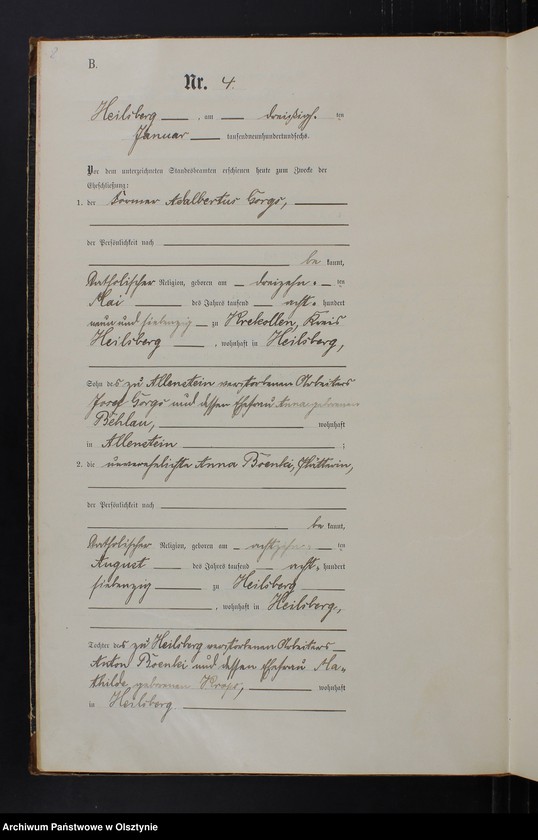 2
B.
Nr. 4.
Heilsberg, am dreißigsten
Januar tausendneunhundertundsechs.
Vor dem unterzeichneten Standesbeamten erschienen heute zum Zwecke der
Eheschließung:
1. der Former Adalbertus Gorgs,
der Persönlichkeit nach
be kannt,
katholischer Religion, geboren am dreizehnten
Mai des Jahres tausend acht hundert
neunundsiebenzig zu Krekollen, Kreis
Heilsberg, wohnhaft in Heilsberg,
Sohn des zu Allenstein verstorbenen Arbeiters
Josef Gorgs und dessen Ehefrau Anna geborenen
Behlau, wohnhaft
in Allenstein;
2. die unverehelichte Anna Boenki,
der Persönlichkeit nach
be kannt,
katholischer Religion, geboren am ten
August des Jahres tausend acht hundert
siebenzig zu Heilsberg
, wohnhaft in Heilsberg,
Tochter des zu Heilsberg verstorbenen Arbeiters
Anton Boenki und dessen Ehefrau Ma-
thilde geborenen wohnhaft
in Heilsberg.
Archiwum Państwowe w Olsztynie